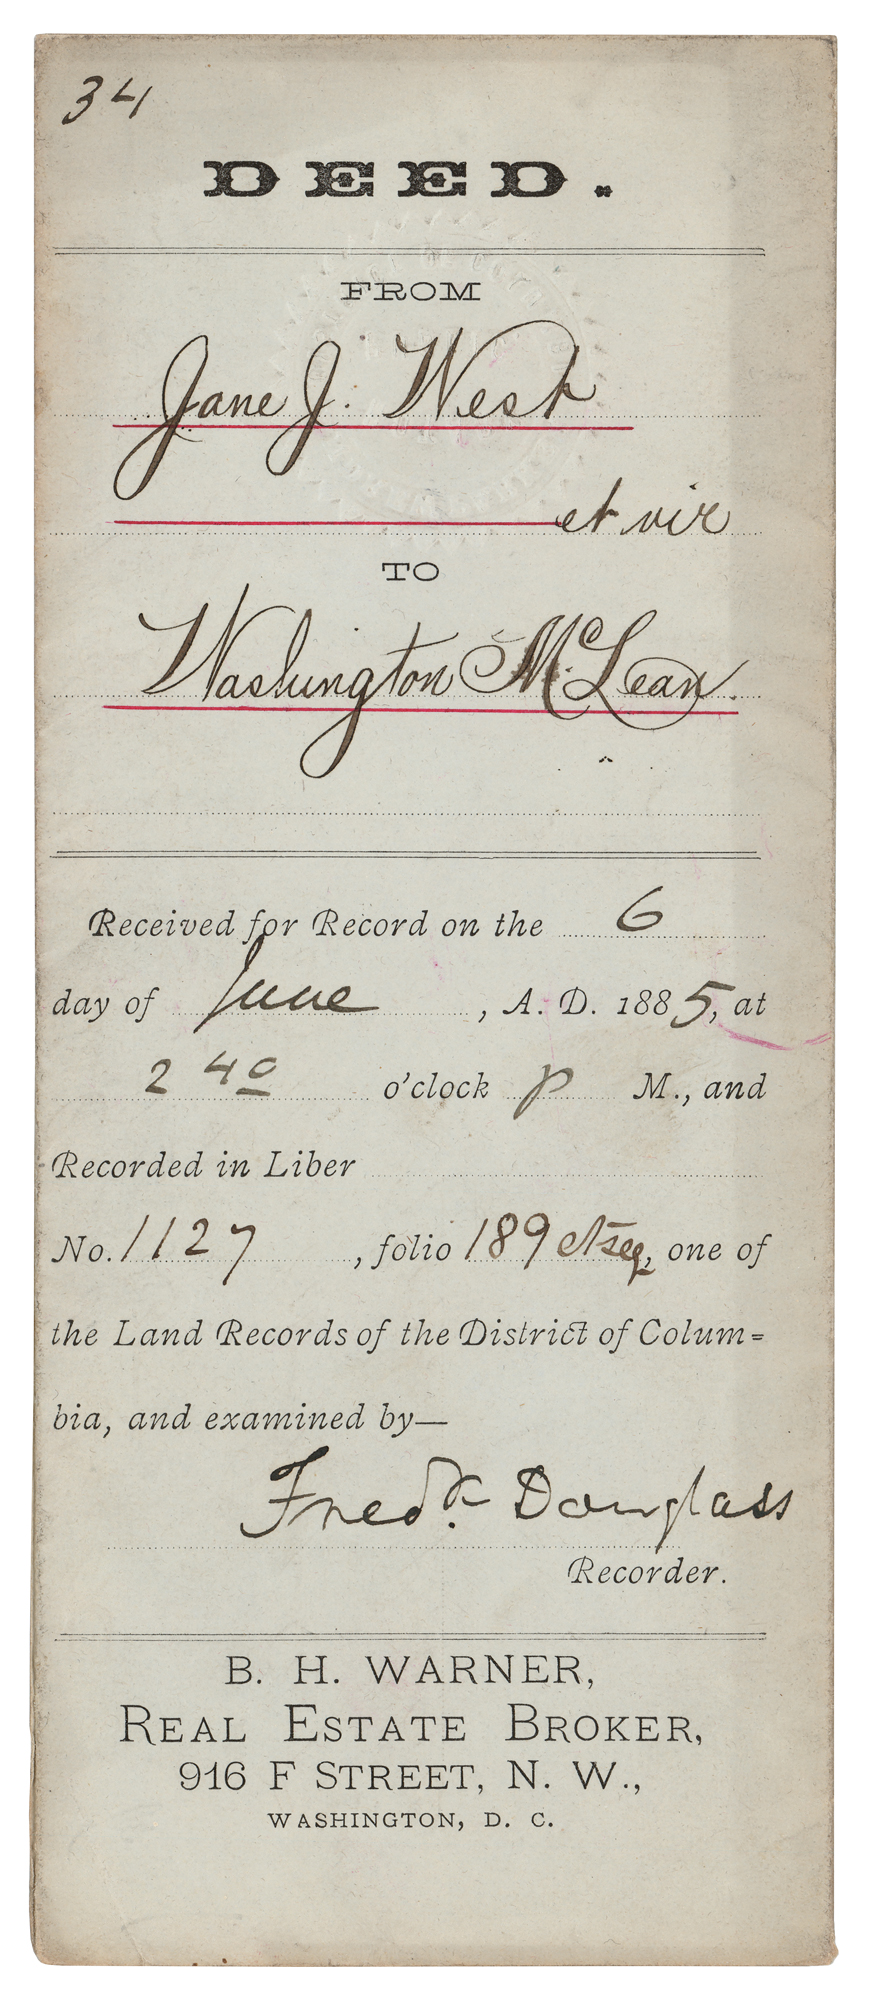 34
DEED.
FROM
Jane J. West
et vir
TO
Washington McLean.
Received for Record on the 6
day of June, A. D. 1885, at
2 40 o'clock P M., and
Recorded in Liber
No. 1127, folio 189 et seq, one of
the Land Records of the District of Colum=
bia, and examined by—
Fredk. Douglass
Recorder.
B. H. WARNER,
REAL ESTATE BROKER,
916 F STREET, N. W.,
WASHINGTON, D. C.